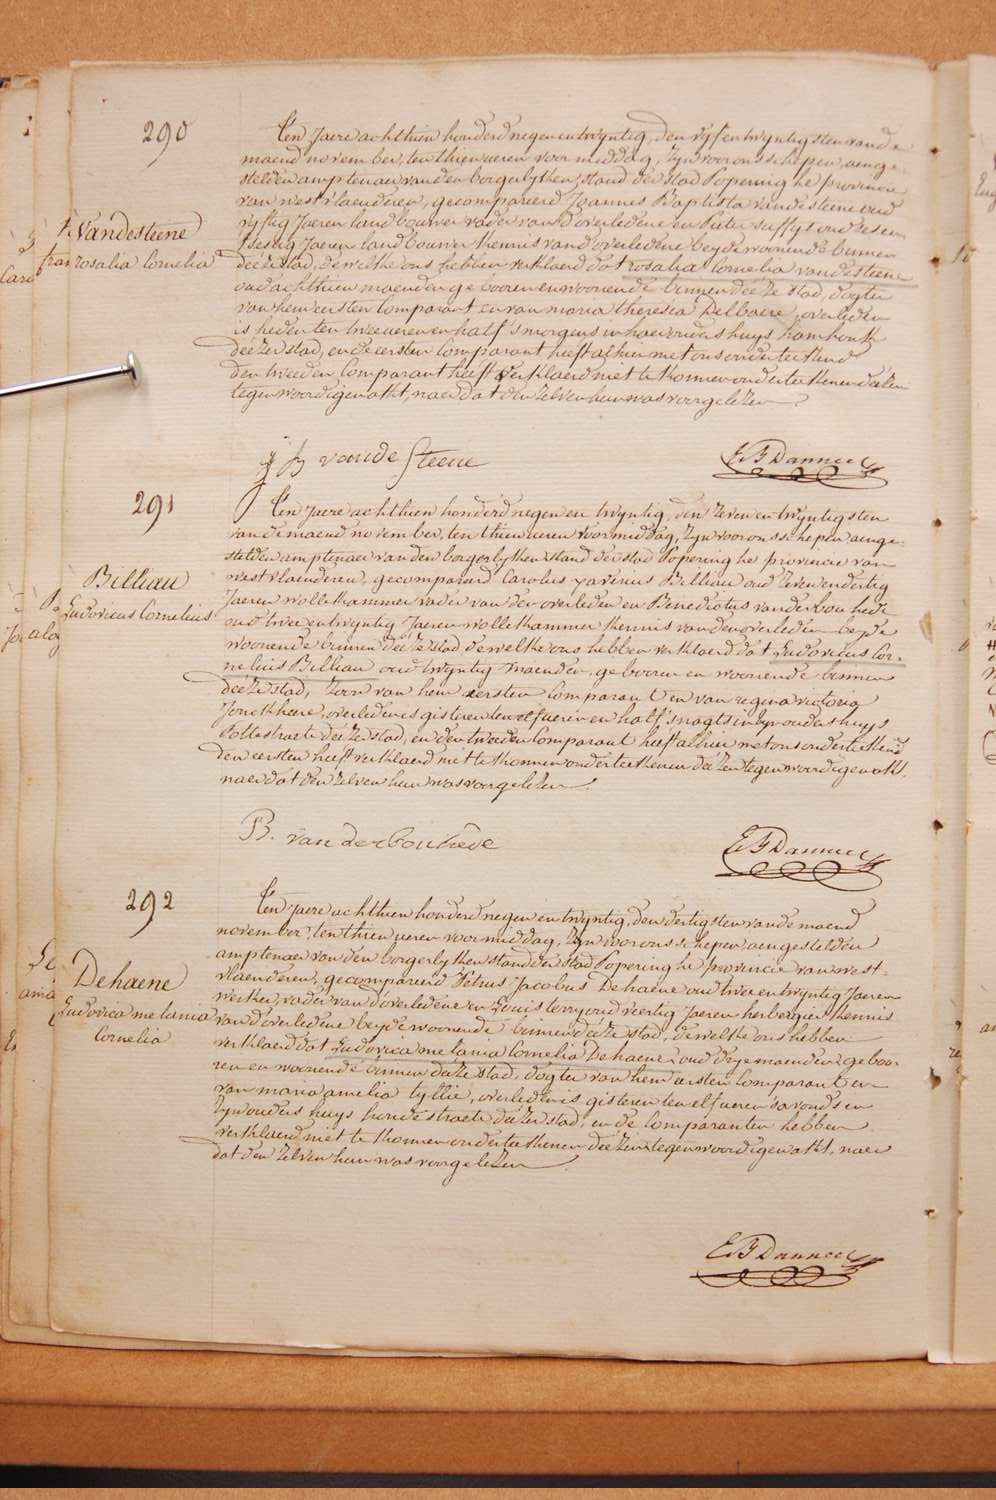 290
Vandesteene
rosalia Cornelia
Ten Jaere achthien honderd negen en twyntig, den vyf en twyntigsten van de
maend november, ten thien ueren voor middag, zyn voor ons schepen aenge-
stelden amptenaer van den borgerlyken stand der stad Poperinghe provincie
van westvlaenderen, gecompareerd Joannes Baptista vandesteene oud
vyftig Jaeren landbouwer vader van d'overledene en Pieter ruffyt oud ses en
sestig Jaeren landbouwer kennis van d'overledene beyde woonende binnen
deéze stad, dewelke ons hebben verklaerd dat rosalia Cornelia vandesteene
oud achthien maenden geboren en woonende binnen deeze stad, dogter
van hem eersten Comparant en van maria theresia Delbaere, overleden
is heden ten twee ueren en half s'morgens in haer ouders huys hamhouk
deézer stad, en de eersten Comparant heeft alhier met ons onderteekend
den tweeden Comparant heeft verklaerd niet te konnen onderteekenen deézen
tegenwoordigen akt, naer dat den zelven hun was voorgelezen
J B vande Steene
E B Dannee
291
Billiau
Ludovicus Cornelius
Ten Jaere achthien honderd negen en twyntig, den zeven en twyntigsten
van de maend november, ten thien ueren voormiddag, zyn voor ons schepen aenge-
stelden amptenaer van den borgerlyken stand der stad Poperinghe provincie van
westvlaenderen, gecompareerd Carolus xaverius Billiau oud zeven en dertig
Jaeren wollekammer vader van den overleden en Benedictus vanderbouhede
oud twee en twyntig Jaeren wollekammer kennis van den overleden beyde
woonende binnen deéze stad dewelke ons hebben verklaerd dat Ludovicus Cor-
nelius Billiau oud twyntig maenden, geboren en woonende binnen
deéze stad, zoon van hem eersten Comparant en van regina victoria
Jonckheere, overleden is gisteren ten elf ueren en half s'nagts in zyn ouders huys
Pottestraete deézer stad, en den tweeden Comparant heeft alhier met ons onderteekend
den eersten heeft verklaerd niet te konnen onderteekenen deézen tegenwoordigen akt,
naer dat den zelven hun was voorgelezen.
B. vanderbouhede
E B Dannee
292
Dehaene
Ludovica melania
Cornelia
Ten Jaere achthien honderd negen en twyntig, den dertigsten van de maend
november, ten thien ueren voor middag, zyn voor ons schepen aengestelden
amptenaer van den borgerlyken stand der stad Poperinghe provincie van west-
vlaenderen, gecompareerd Petrus Jacobus Dehaene oud twee en twyntig Jaeren
werker, vader van d'overledene en Louis terry oud veertig Jaeren herbergier kennis
van d'overledene beyde woonende binnen deéze stad, dewelke ons hebben
verklaerd dat Ludovica melania Cornelia Dehaene, oud drye maenden geboo-
ren en woonende binnen deéze stad, dogter van hem eersten Comparant en
van maria amelia tyllie, overleden is gisteren ten elf ueren s'avonds en
zyn ouders huys, hondestraete deézer stad, en de Comparanten hebben
verklaerd niet te konnen onderteekenen deézen tegenwoordigen akt, naer
dat den zelven hun was voorgelezen
E B Dannee